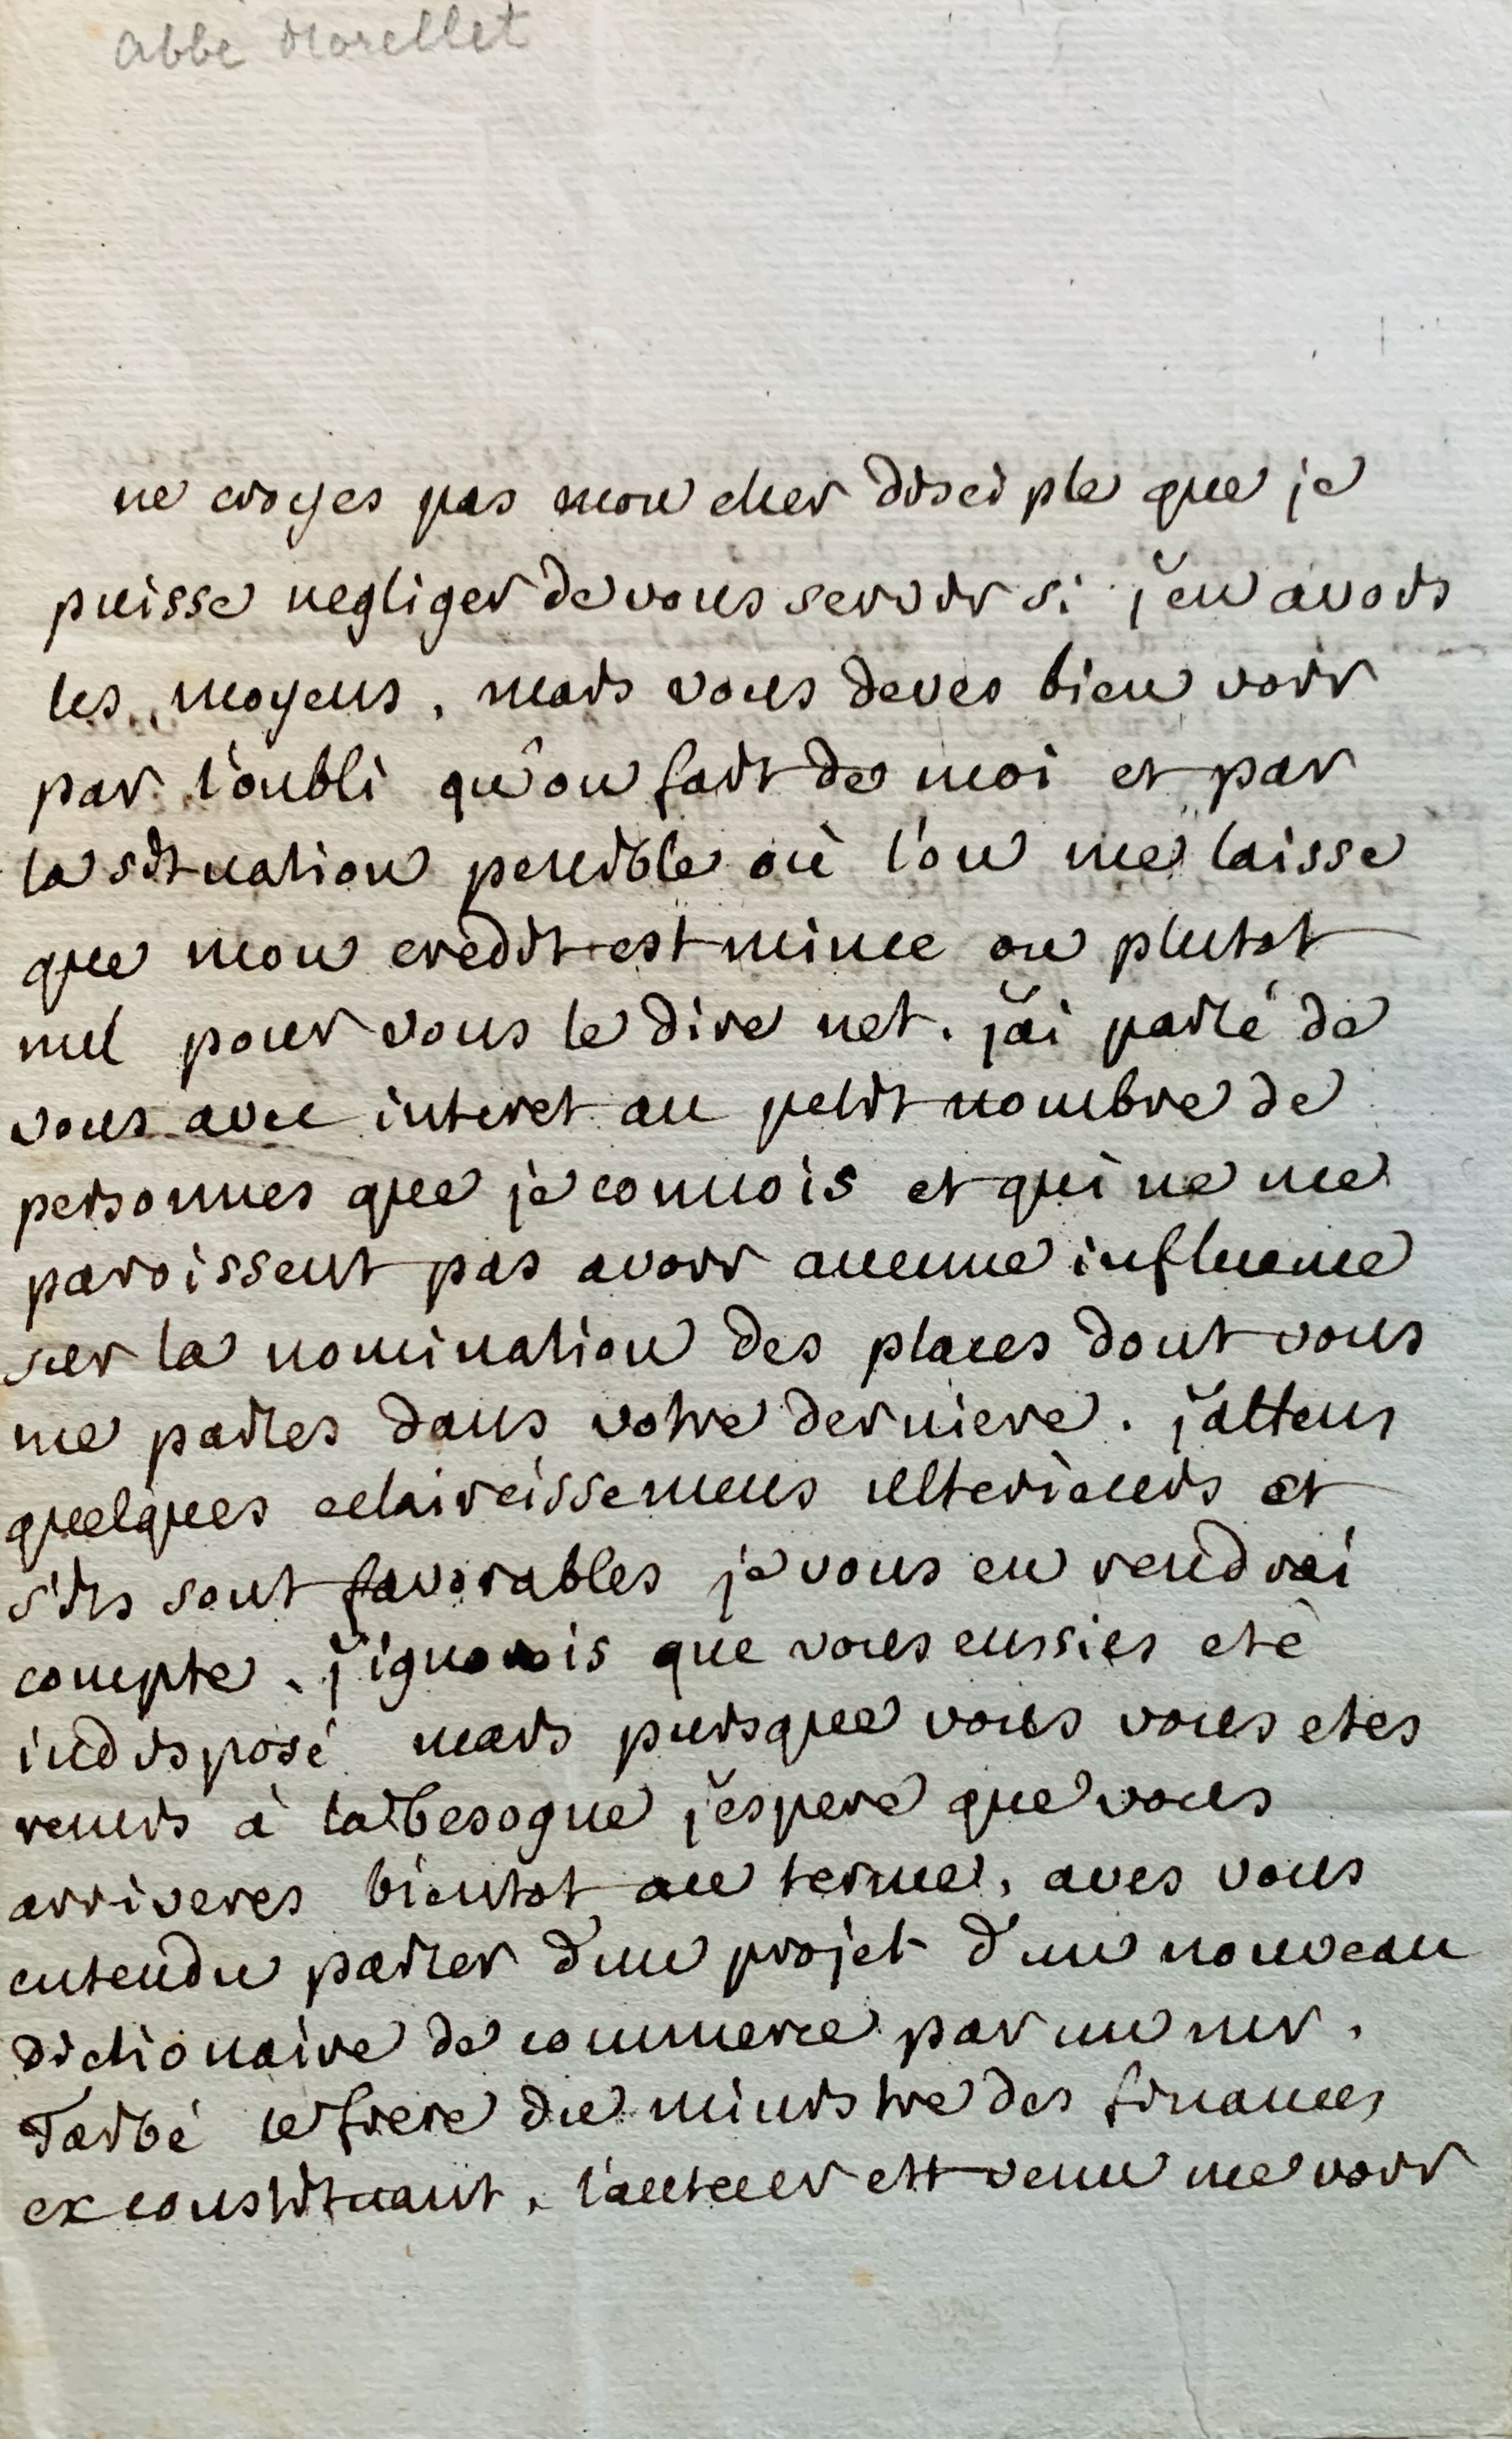 abbé Morellet
ne croyes pas mon cher disciple que je
puisse negliger de vous servir si j'en avois
les moyens, mais vous deves bien voir
par l'oubli qu'on fait de moi et par
la situation penible où l'on me laisse
que mon credit est mince ou plutot
nul pour vous le dire net. j'ai parlé de
vous avec interet au petit nombre de
personnes que je connois et qui ne me
paroissent pas avoir aucune influence
sur la nomination des places dont vous
me parles dans votre derniere. j'attens
quelques eclaircissemens ulterieurs et
s'ils sont favorables je vous en rendrai
compte. j'ignorois que vous eussies eté
indisposé mais puisque vous vous etes
remis à la besogne j'espere que vous
arriveres bientot au terme. aves vous
entendu parler d'un projet d'un nouveau
dictionaire de commerce par un mr.
Tarbé le frere du ministre des finances
exconstituant. l'auteur est venu me voir